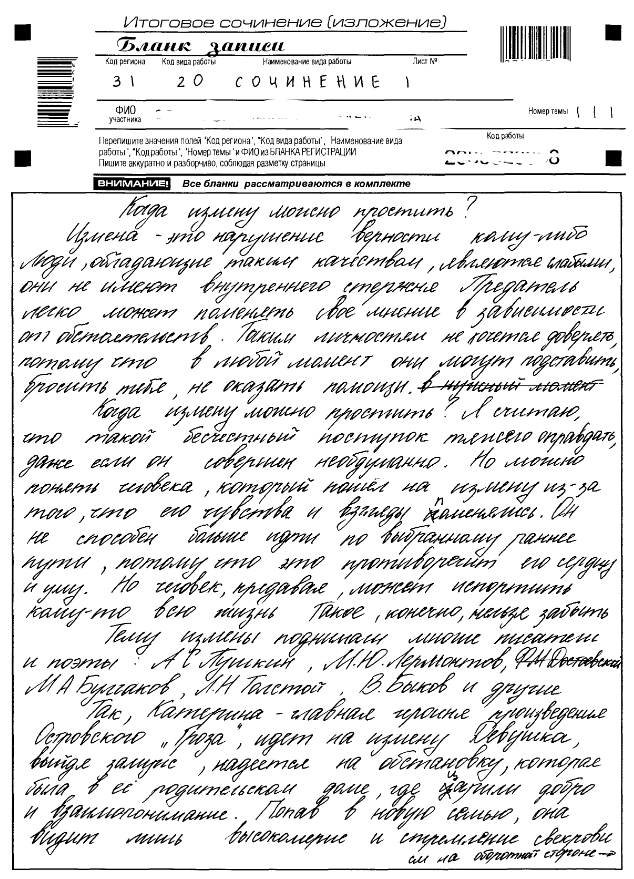 Итоговое сочинение (изложение)
Бланк записи
Код региона Код вида работы Наименование вида работы Лист №
31 20 СОЧИНЕНИЕ 1
ФИО участника
Номер темы 111
Перепишите значения полей "Код региона", "Код вида работы", Наименование вида
работы", "Код работы", "Номер темы" и ФИО из БЛАНКА РЕГИСТРАЦИИ
Пишите аккуратно и разборчиво, соблюдая разметку страницы
Код работы
ВНИМАНИЕ! Все бланки рассматриваются в комплекте
Когда измену можно простить?
Измена - это нарушение верности кому-либо
Люди, обладающие таким качеством, являются слабыми,
они не имеют внутреннего стержня Предатель
легко может поменять свое мнение в зависимости
от обстоятельств. Таким личностям не хочется доверять,
потому что в любой момент они могут подставить,
бросить тебя, не оказать помощи. в нужный момент
Когда измену можно простить? Я считаю,
что такой бесчестный поступок тяжело оправдать,
даже если он совершен необдуманно. Но можно
понять человека, который пошёл на измену из-за
того, что его чувства и взгляды поменялись. Он
не способен больше идти по выбранному ранее
пути, потому что это противоречит его сердцу
и уму. Но человек, предавая, может испортить
кому-то всю жизнь Такое, конечно, нельзя забыть
Тему измены поднимали многие писатели
и поэты: А С Пушкин, М.Ю. Лермонтов, Ф.М Достоевский
М А Булгаков, Л.Н Толстой, В. Быков и другие
Так, Катерина - главная героиня произведения
Островского „Гроза", идет на измену Девушка,
выйдя замуж, надеется на обстановку, которая
была в её родительском доме, где царили добро
и взаимопонимание. Попав в новую семью, она
видит лишь высокомерие и стремление свекрови
см на оборотной стороне →